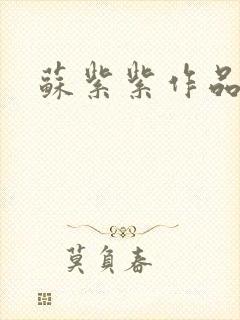 蘇紫紫作品
莫負春